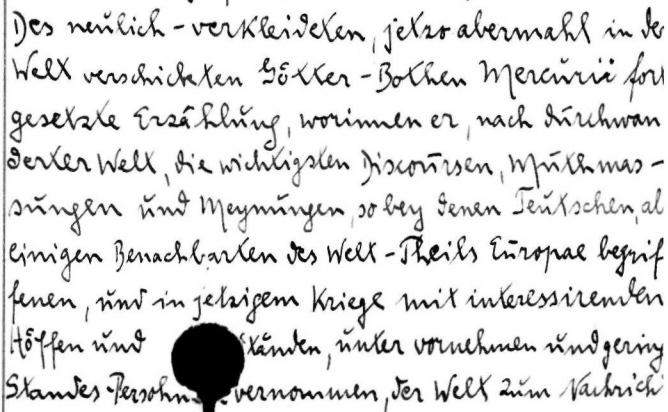 Des neulich-verkleideten, jetzo abermahl in de
Welt verschickten Götter-Bothen Mercurii fort
gesetzte Erzählung, worinnen er, nach durchwan
derter Welt, die wichtigsten Discoursen, Muthmas-
sungen und Meynungen, so bey denen Teutschen, al
einigen Benachbarten des Welt-Theils Europae begrif
fenen, und in jetzigem Kriege mit interessirenden
Höffen und ständen, unter vornehmen und gering
Standes-Persohn vernommen, der Welt zum Nachrich